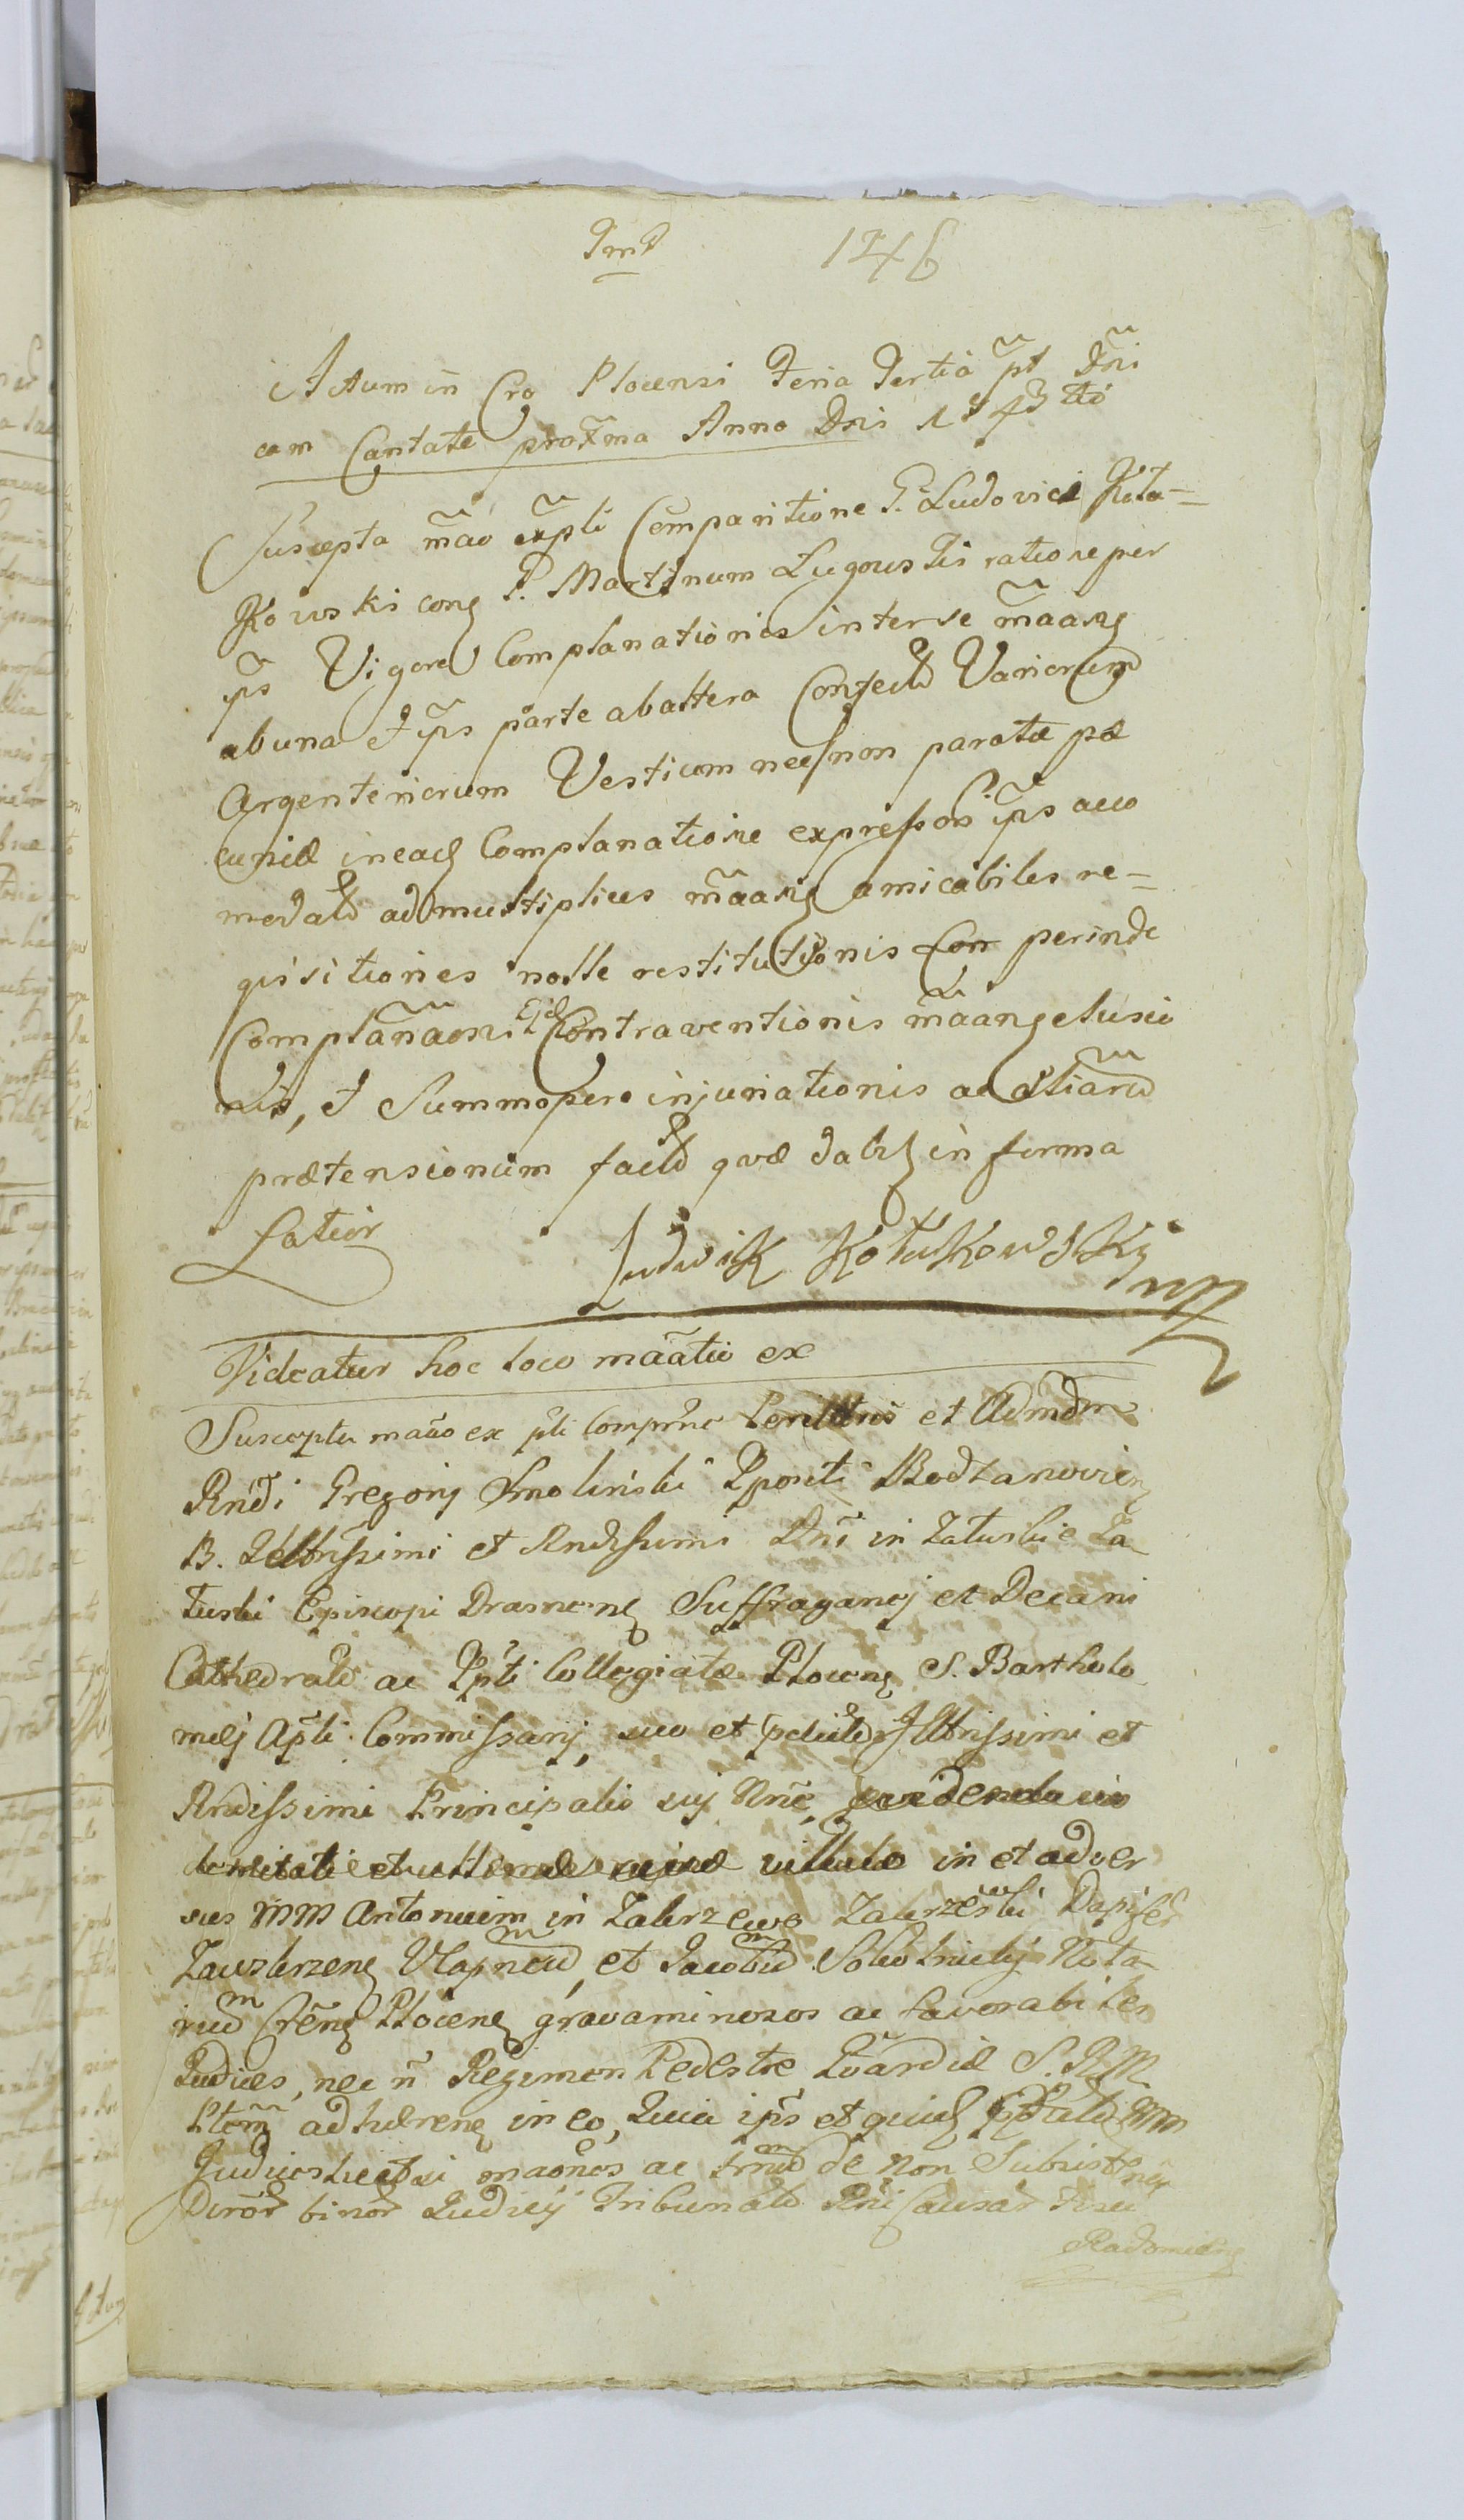 146
Actum in Cro Plocensi Feria Tertia pt Dni
cam Cantate proxma Anno Dni 1743tio
Suscepta mao expli Comparitione G. Ludovici Kotu-
Kowski cong G. Martinum Lugowski ratione per
ips Vigore Complanationis inter se maang
ab una et ips parte ab altera Confectæ Variorum
Argenteriorum Vestium necnon paratæ pæ
cuniæ in eadg Complanatione expressorum ips acco
modatæ ad multiplices maang amicabiles re-
qisitiones nolle restitutionis perinde
Complanaons Ejd Contraventionis maang elusio
nis, et Summopere injuriationis ac aliarum
prætensionum factæ qvæ dabg in forma
Latior Ludwik Kotukowski mp
Videatur hoc loco maatio ex
Suscepta mao ex pli Comprne Perillris et Admdm
Rndi Gregory Smolinski Ppositi Bodzanovien
B. Illmissimi et Rndissimi Dni in Zaluskie Za
luski Episcopi Drasneng Suffraganej et Decani
Cathedralis ac Ppti Collegiatæ Ploceng S. Bartholo
mej Apli Commissarij suo et Illmissimi et
Rndissimi Principalis suj Nne
in et adver
sus MM Antonium in Zakrzewo Zakrzewski Dapifer
Zawskrzeng et Jacobum Sokolnicky Nota
rium Creng Ploceng gravaminosos ac favorabiles
Judices, nec n Regimen Pedestre Gvardiæ S. R. M.
adhæreng in eo, Quia ips et quidg MM
Judices maones ac de non Subsistencij
binor Judicij Tribunalis Rni Causar Fisci
Radomieng